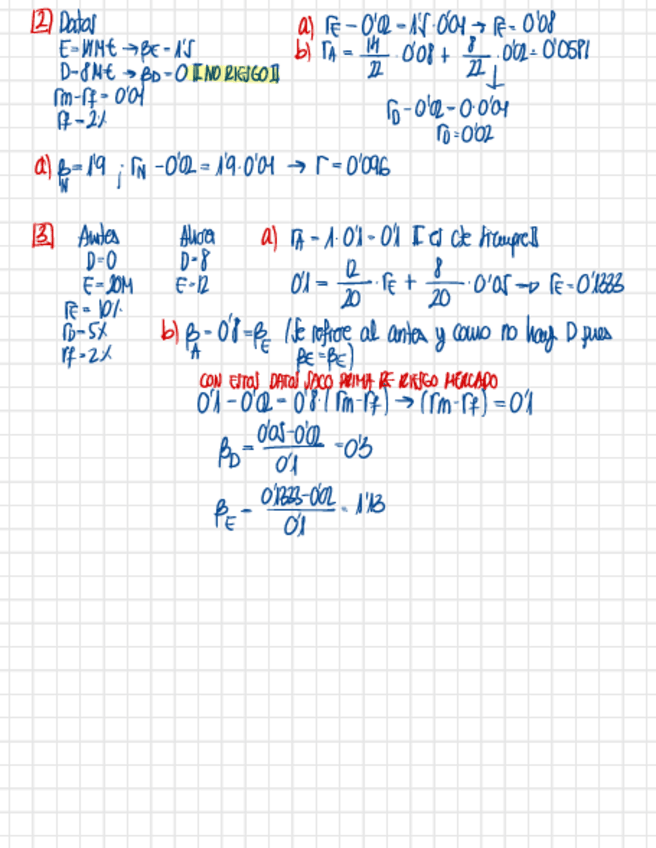 2 Datos
E=14M€ → βE = 1'5
D=8M€ → βD = 0 [[NO RIESGO]]
rm-rf = 0'04
rf = 2%
a) rE - 0'02 = 1'5·0'04 → rE = 0'08
b) rA = 14/22 · 0'08 + 8/22 · 0'02 = 0'0581
↓
rD - 0'02 = 0·0'04
rD = 0'02
a) βN = 1'9 ; rN - 0'02 = 1'9·0'04 → r = 0'096
3
Antes
D=0
E=20M
rE = 10%
rD = 5%
rf = 2%
Ahora
D=8
E=12
a) rA = 1·0'1 = 0'1 [[ct de siempre]]
0'1 = 12/20 · rE + 8/20 · 0'05 → rE = 0'1333
b) βA = 0'8 = βE (Se refiere al antes y como no hay D pues
βE = βE)
CON ESTOS DATOS SACO PRIMA DE RIESGO MERCADO
0'1 - 0'02 = 0'8·(rm-rf) → (rm-rf) = 0'1
βD = 0'05-0'02/0'1 = 0'3
βE = 0'1333-0'02/0'1 = 1'13